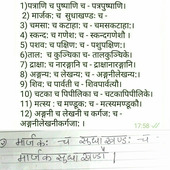 1)पत्राणि च पुष्पाणि च - पत्रपुष्पाणि।
2) मार्जकः च सुधाखण्डः च -
3) चमसः च कटाहः च - चमसकटाहः।
4) स्कन्दः च गणेशः च - स्कन्दगणेशौ ।
5) पशवः च पक्षिणः च - पशुपक्षिणः।
6)तालः च कुञ्चिका च -तालकुञ्चिके।
7) द्राक्षाः च नारङ्गानि च -द्राक्षानारङ्गानि।
8) अङ्कन्यः च लेखन्यः च - अङ्कनीलेखन्यः।
9) शिवः च पार्वती च -शिवपार्वत्यौ।
10) चटका च पिपीलिका च -चटकापिपीलिके।
11) मत्स्यः च मण्डूकः च - मत्स्यमण्डूकौ
12) अङ्कनी च लेखनी च कर्गजः च -
अङ्कनीलेखनीकर्गजाः ।
17:58
2 मार्जकः च सुधाखण्डः च
मार्जकसुधाखण्डौ ।